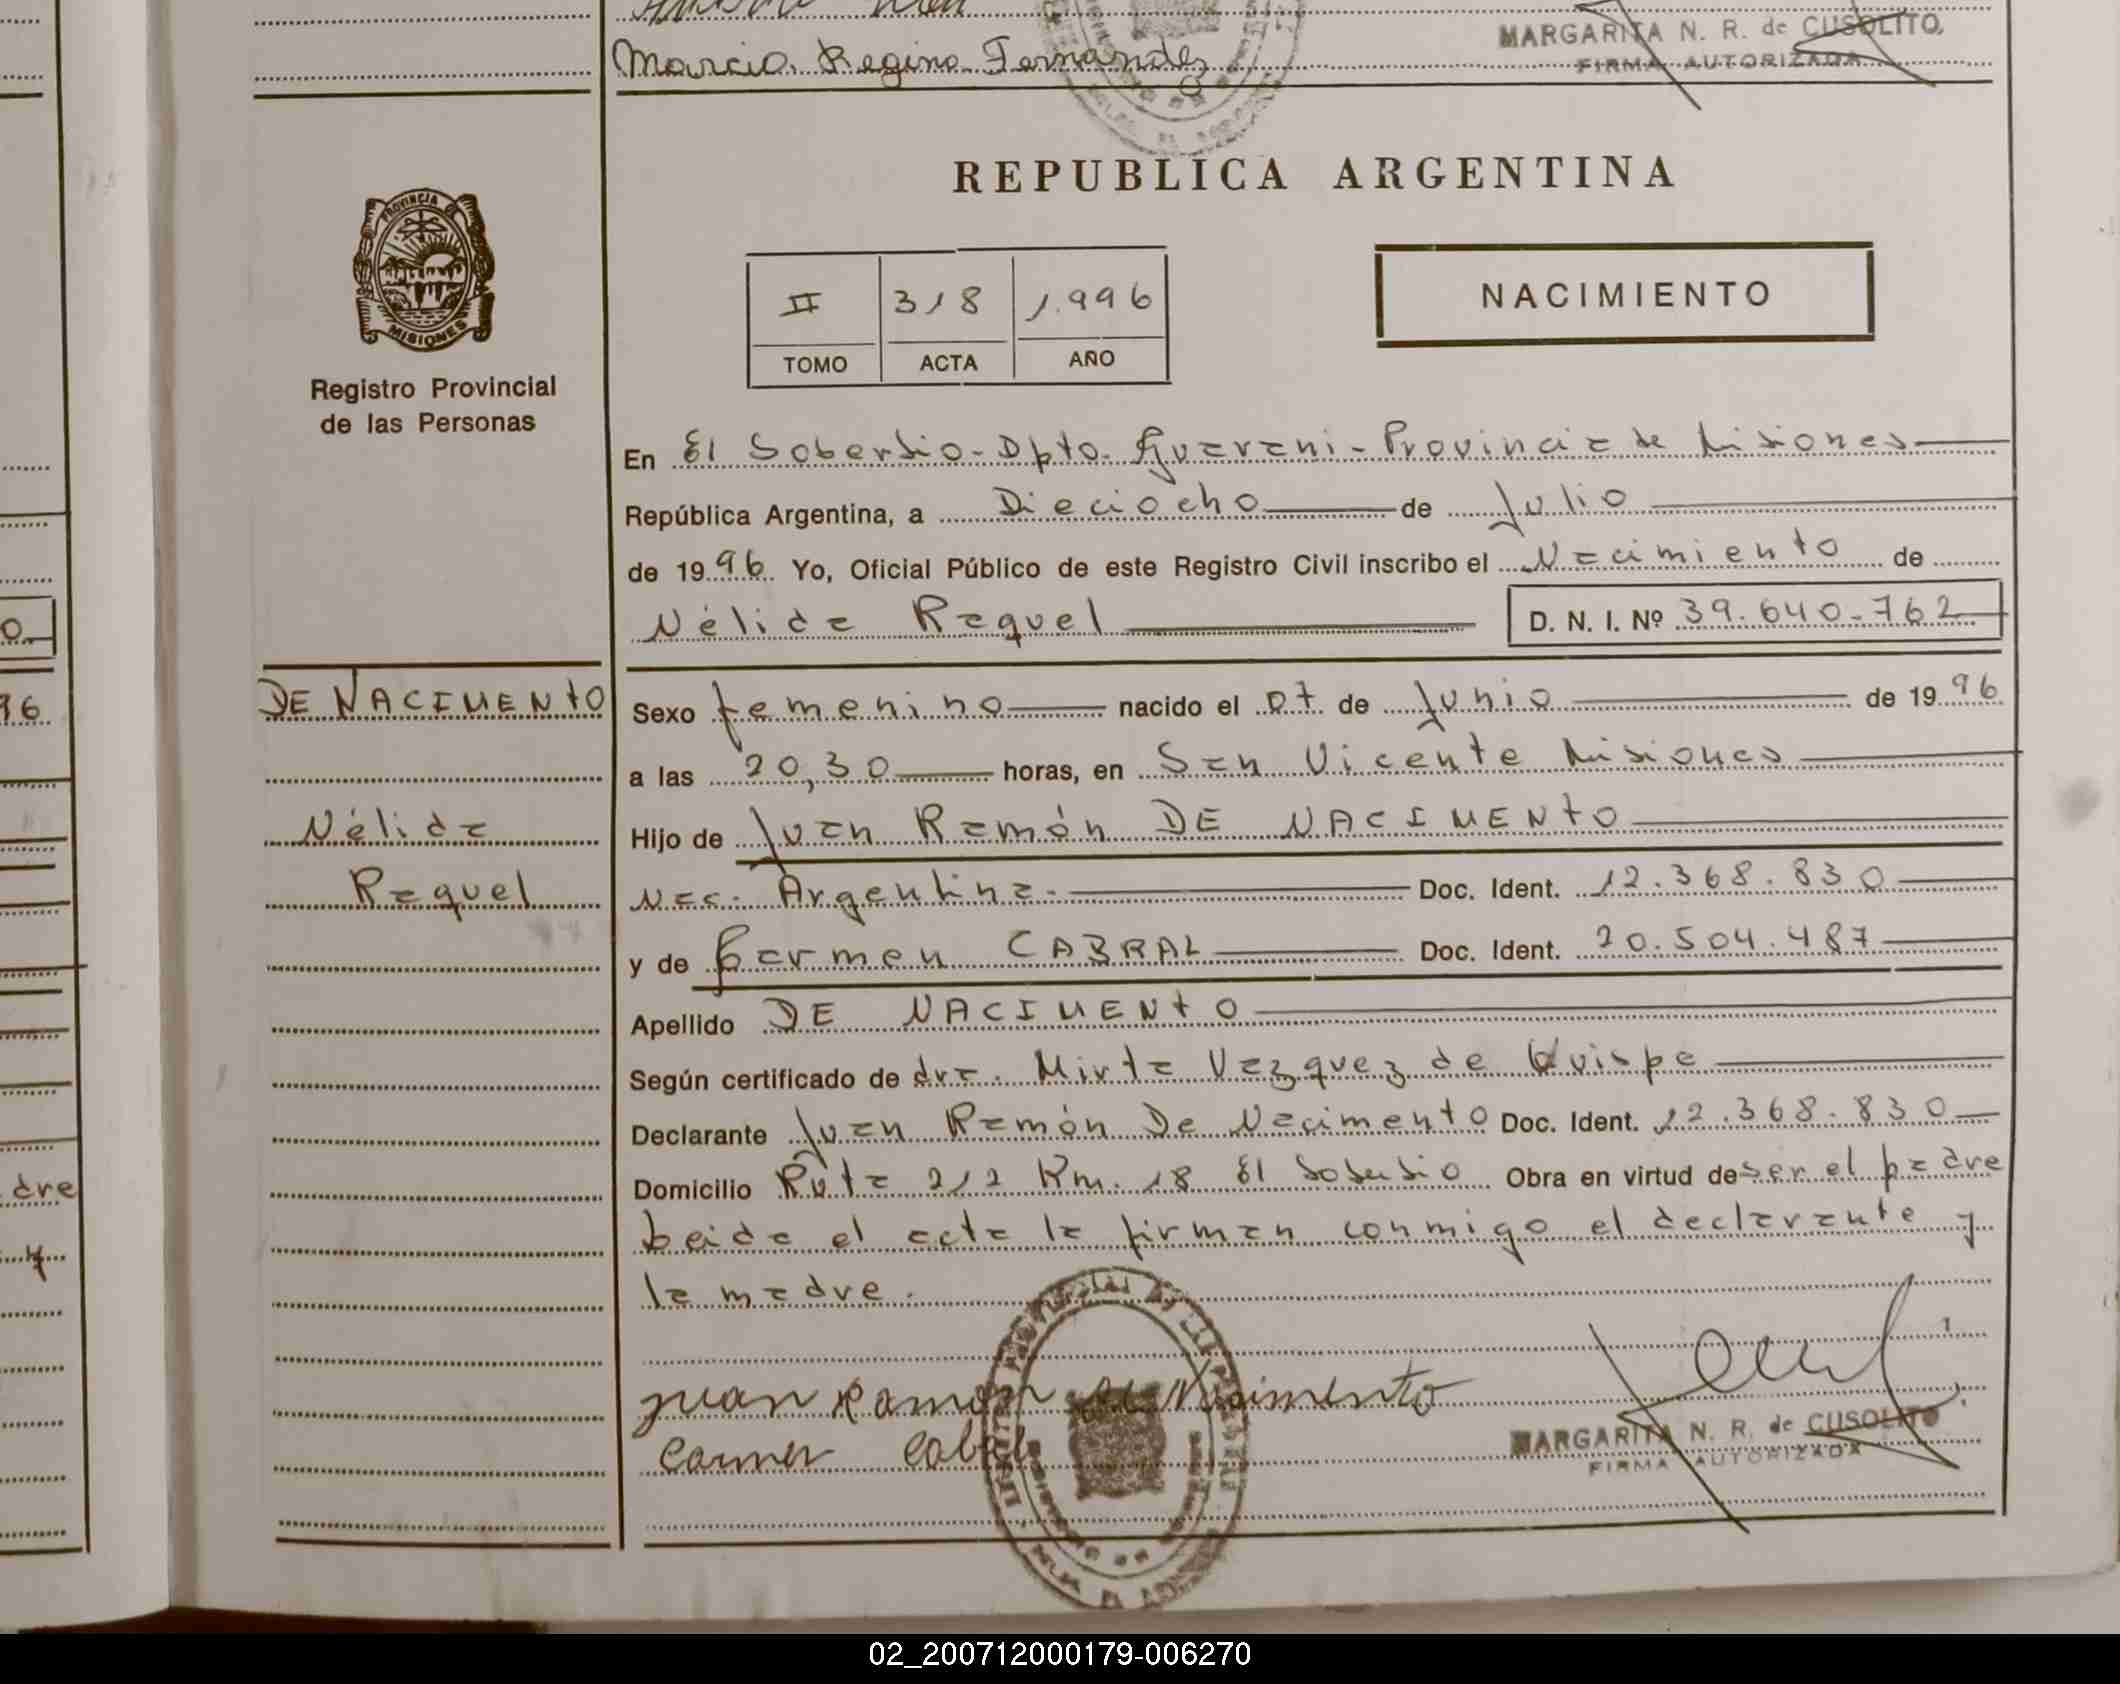 Marcia Regina Fernandez
MARGARITA N. R. de CUSOLITO
FIRMA AUTORIZADA
REPUBLICA ARGENTINA
PROVINCIA DE
MISIONES
Registro Provincial
de las Personas
II 318 1.996
TOMO ACTA AÑO
NACIMIENTO
En El Soberbio - Dpto. Guarani - Provincia de Misiones
República Argentina, a Dieciocho de Julio
de 1996 Yo, Oficial Público de este Registro Civil inscribo el Nacimiento de
Nélida Raquel D. N. I. Nº 39.640.762
DE NACIMENTO
Nélida
Raquel
Sexo femenino nacido el 07 de Junio de 1996
a las 20,30 horas, en San Vicente Misiones
Hijo de Juan Ramón DE NACIMENTO
Nac. Argentina. Doc. Ident. 12.368.830
y de Carmen CABRAL Doc. Ident. 20.504.487
Apellido DE NACIMENTO
Según certificado de dra. Mirta Vazquez de Quispe
Declarante Juan Ramón De Nacimento Doc. Ident. 12.368.830
Domicilio Ruta 212 Km. 18 El Soberbio Obra en virtud de ser el padre
Leida el acta la firman conmigo el declarante y
la madre.
Juan Ramon de Nacimento
Carmen Cabral
MARGARITA N. R. de CUSOLITO
FIRMA AUTORIZADA
96
dre
y
02_200712000179-006270